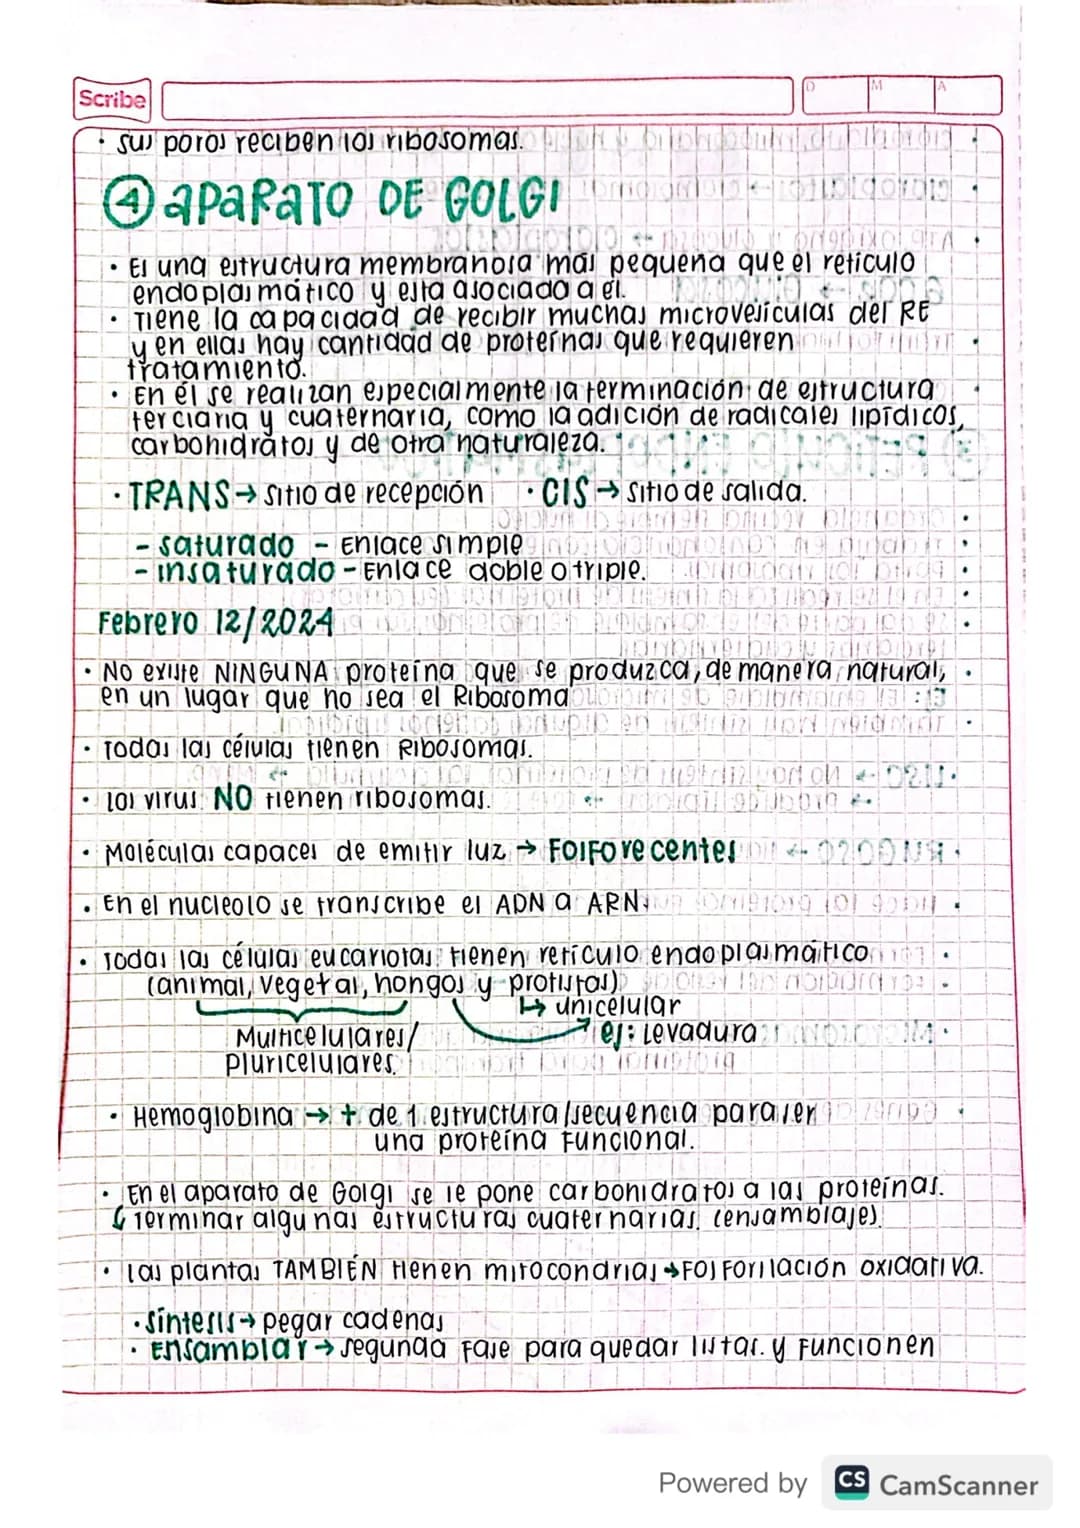 Scribe
D M A
• sus poros reciben los ribosomas.
④ APARATO DE GOLGI
• Es una estructura membranosa más pequeña que el retículo
endoplasmático y esta asociado a él.
• Tiene la capacidad de recibir muchas microvesículas del RE
y en ellas hay cantidad de proteínas que requieren
tratamiento.
• En él se realizan especialmente la terminación de estructura
terciaria y cuaternaria, como la adición de radicales lipídicos,
carbohidratos y de otra naturaleza.
• TRANS → sitio de recepción • CIS → sitio de salida.
- saturado - Enlace simple
- insaturado - Enlace doble o triple.
Febrero 12/2024
• No existe NINGUNA proteína que se produzca, de manera natural,
en un lugar que no sea el Ribosoma
• Todas las células tienen Ribosomas.
• Los virus NO tienen ribosomas.
• Moléculas capaces de emitir luz → Fosforecentes
• En el nucleolo se transcribe el ADN a ARN.
• Todas las células eucariotas tienen retículo endoplasmático
(animal, vegetal, hongos y protistas)
↳ unicelular
Multicelulares/ ej: Levadura
Pluricelulares.
• Hemoglobina → + de 1 estructura/secuencia para ser
una proteína funcional.
• En el aparato de Golgi se le pone carbohidratos a las proteínas.
↳ Terminar algunas estructuras cuaternarias. (ensamblajes)
• Las plantas TAMBIÉN tienen mitocondrias → Fosforilación oxidativa.
• síntesis → pegar cadenas
• Ensamblar → segunda fase para quedar listas y funcionen
Powered by CS CamScanner